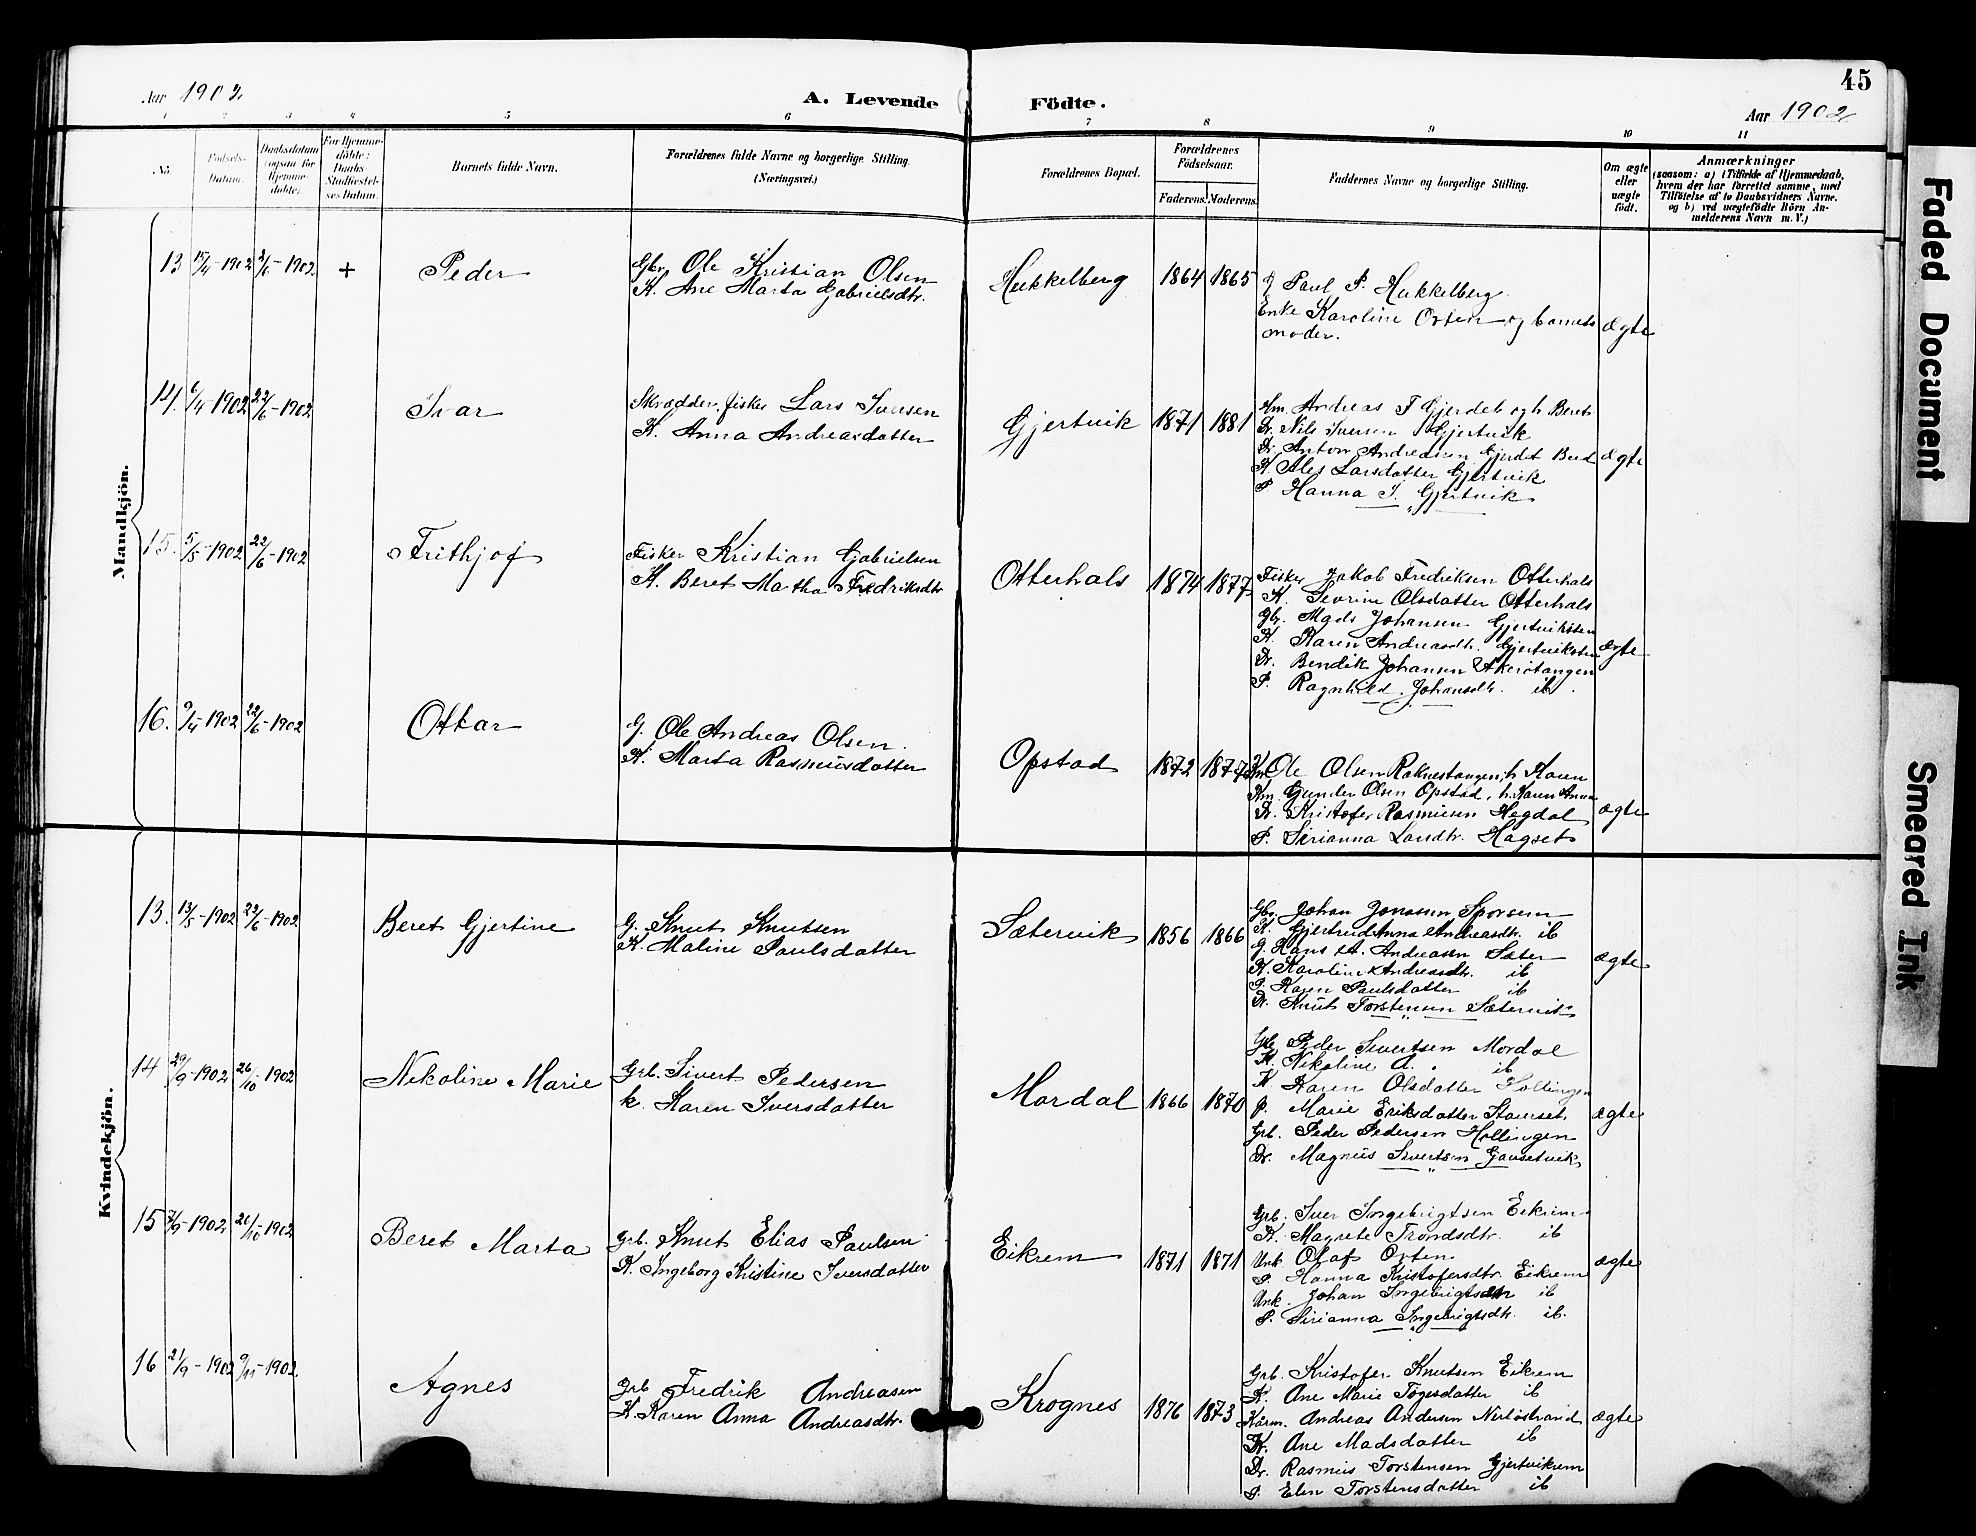 45
Aar 1902
A. Levende Födte.
Aar 1902
1 2 3 4 5 6 7 8 9 10 11
No.
Födsels-
Datum.
Daabsdatum
ogsaa for
Hjemme-
döbte.
For Hjemme-
döbte:
Daabs
Stadfæstel-
ses Datum.
Barnets fulde Navn.
Forældrenes fulde Navne og borgerlige Stilling
(Næringsvei.)
Forældrenes Bopæl.
Forældrenes
Födselsaar.
Faderens. Moderens.
Faddernes Navne og borgerlige Stilling.
Om ægte
eller
uægte
født.
Anmærkninger
(saasom: a) i Tilfælde af Hjemmedaab,
hvem der har forrettet samme, med
Tilföielse af to Daabsvidners Navne.
og b) ved uægtefødte Börn An-
melderens Navn m. V.)
Mandkjön.
13 15/4-1902 2/6-1902 + Peder
Gbr. Ole Kristian Olsen
K. Ane Marta Gabrielsdtr.
Hukkelberg 1864 1865
Paul P. Hukkelberg
Enke Karoline Orten og barnets
moder.
ægte
14. 6/4-1902 22/6-1902 Ivar
Skrædder, fisker Lars Iversen
K. Anna Andreasdatter
Gjertvik 1871 1881
Andreas Gjerdet og h. Beret
Dr. Nils Iversen Gjertvik
Dr. Anton Andreasen Gjerdet Bud
K. Ales Larsdatter Gjertvik
P. Hanna I. Gjertvik
ægte
15. 5/5-1902 22/6-1902 Frithjof
Fisker Kristian Gabrielsen
K. Beret Martha Fredriksdtr
Otterhals 1874 1877
Fisker Jakob Fredriksen Otterhals
K. Sevrine Olsdatter Otterhals
Gbr. Mads Johansen Gjertvikste
K. Karen Andreasdtr. Gjertvikste
Dr. Bendik Johansen Akerötangen
P. Ragnhild Johansdtr. ib.
ægte
16. 9/4-1902 22/6-1902 Ottar
G. Ole Andreas Olsen.
K. Marta Rasmusdatter
Opstad 1872 1877
Km. Ole Olsen Raknestangen, h. Karen
Km. Gunder Olsen Opstad, h. Karen Anna
Dr. Kristofer Rasmusen Hegdal
P. Sirianna Larsdtr. Hagset
ægte
Kvindekjön.
13. 13/5-1902 22/6-1902 Beret Gjertine
G. Knut Knutsen
K. Maline Paulsdatter
Sætervik 1856 1866
Gbr. Johan Jonassen Sporsem
K. Gjertrud Anna Andreasdtr. ib
G. Hans A. Andreasen Sæter
K. Karoline Andreasdtr. ib
P. Karen Paulsdatter ib
Dr. Knut Torstensen Sætervik
ægte
14 29/9-1902 26/10-1902 Nikoline Marie
Grb. Sivert Pedersen
k. Karen Iversdatter
Mordal 1866 1870
Gbr. Peder Sivertsen Mordal
K. Nikoline A. ib
K Karen Olsdatter Hollingen
P. Marie Eriksdatter Stavset
Grb. Peder Pedersen Hollingen
Dr. Magnus Sivertsen Gausetvik
ægte
15 7/9-1902 26/10-1902 Beret Marta
Grb. Knut Elias Paulsen
K. Ingeborg Kristine Iversdatter
Eikrem 1871 1871
Grb. Iver Ingebrigtsen Eikrem
K. Magrete Trondsdtr. ib
Unk. Olaf Orten
P. Hanna Kristofersdtr. Eikrem
Unk. Johan Ingebrigtsen ib
P. Sirianna Ingebrigtsdtr. ib.
ægte
16 21/9-1902 9/11-1902. Agnes
Grb Fredrik Andreasen
K. Karen Anna Andreasdtr.
Krognes 1876 1873
Grb. Kristofer Knutsen Eikrem
K. Ane Marie Togesdatter ib
Kårm. Andreas Andersen Nerlöstrand
K. Ane Madsdatter ib
Dr. Rasmus Torstensen Gjertvikrem
P. Elen Torstensdatter ib
ægte
Faded Document
Smeared Ink